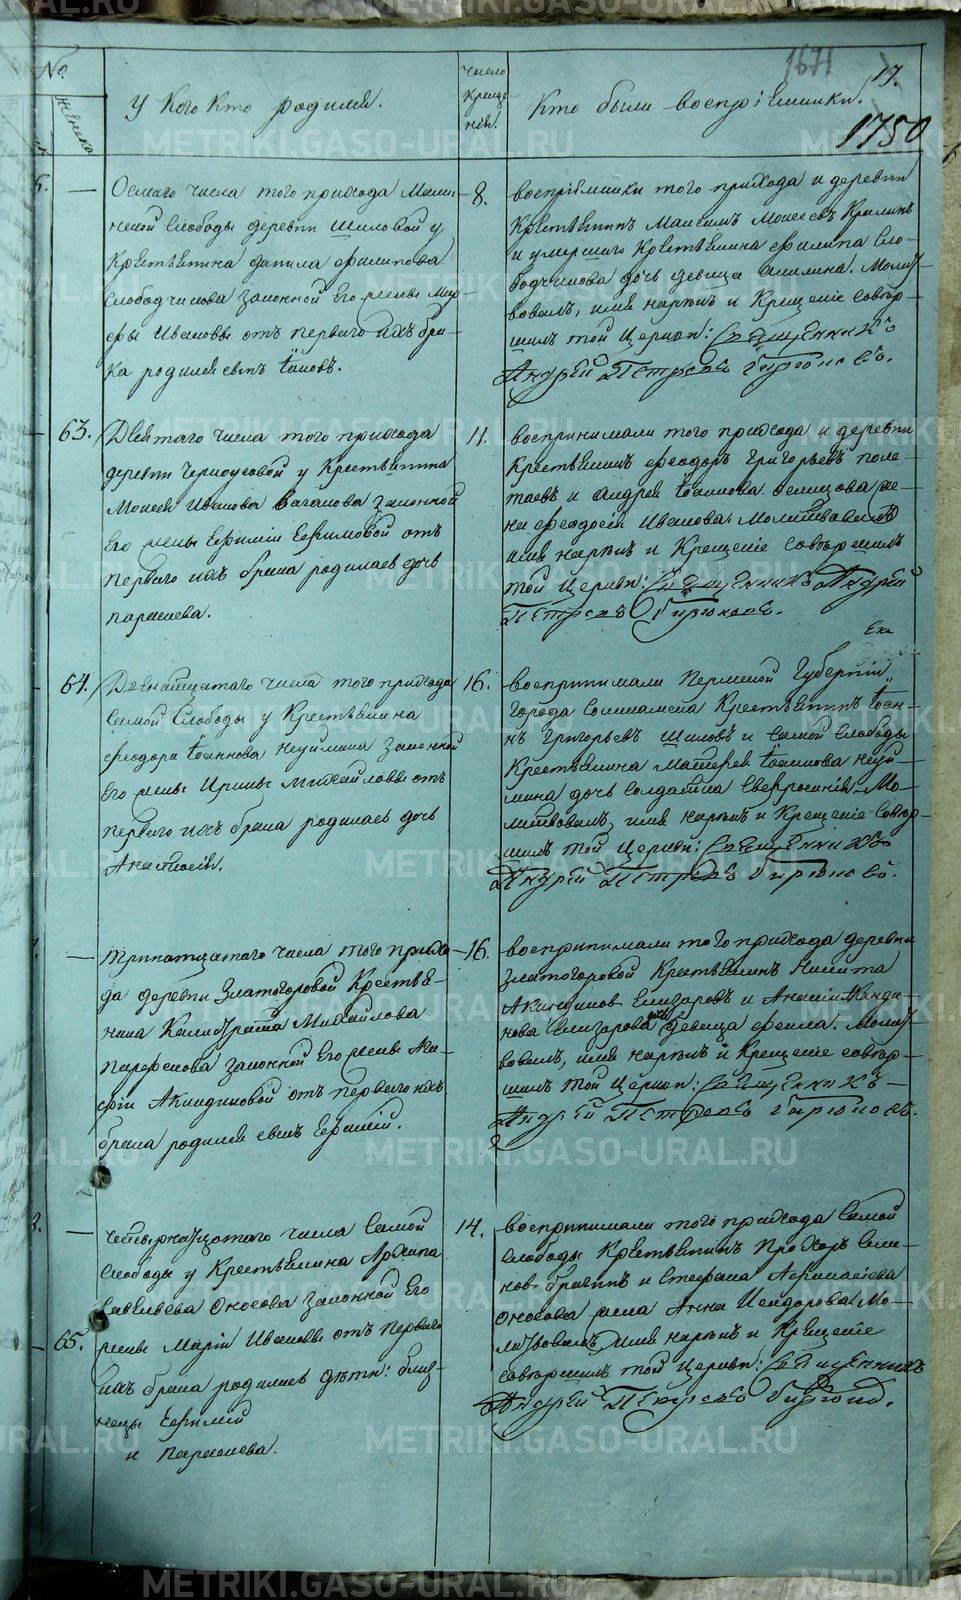 №
женска
У кого кто родился.
Число
Креще-
нія.
Кто были воспріемники.
1671
17.
1750
— Осмаго числа того прихода
слободы деревни Шиловой у
Крестьянина Данила Филипова
Слободчикова законной Его жены Мар-
фы Ивановы отъ перваго ихъ бра-
ка родился сынъ Іоаннъ.
8.
воспріемники того прихода и деревни
Крестьянинъ Максимъ Моисеевъ
и умершаго Крестьянина Филипа Сло-
бодчикова дочь девица Акилина. Молит-
вовалъ, имя нарекъ и Крещеніе совер-
шилъ той Церкви: Священникъ
Андрей Петровъ Бирюковъ.
63. Девятаго числа того прихода
деревни Черноусовой у Крестьянина
Моисея Иванова Ваганова законной
Его жены Ефиміи Ефимовой отъ
перваго ихъ брака родилась дочь
Параскева.
11.
воспринимали того прихода и деревни
Крестьянинъ Феодоръ Григорьевъ Поле-
таевъ и Андрея Іоаннова же-
на Феодосія Иванова. Молитвовалъ
имя нарекъ и Крещеніе совершилъ
той Церкви: Священникъ Андрей
Петровъ Бирюковъ.
Ека
64. Двенатцатаго числа того прихода
самой Слободы у Крестьянина
Феодора Іоаннова Неуймина законной
Его жены Ирины Михайловы отъ
перваго ихъ брака родилась дочь
Анастасія.
16.
воспринимали Пермской Губерніи
города Соликамска Крестьянинъ Іоан-
нъ Григорьевъ Шиловъ и самой слободы
Крестьянина Матвея Іоаннова Неуй-
мина дочь солдатка Евфросинія. Мо-
литвовалъ, имя нарекъ и Крещеніе совер-
шилъ той Церкви: Священникъ
Андрей Петровъ Бирюковъ.
— Тринатцатаго числа того прихо-
да деревни Златогоровой Крестья-
нина Калистрата Михайлова
Парфенова законной Его жены
Акиндиновой отъ перваго ихъ
брака родился сынъ Ефимій.
16.
воспринимали того прихода деревни
Златогоровой Крестьянинъ Никита
Акиндиновъ Елизаровъ и Акинди-
нова Елизарова дочь девица Фекла. Молит-
вовалъ, имя нарекъ и Крещеніе совер-
шилъ той Церкви: Священникъ
Андрей Петровъ Бирюковъ.
— Четыренатцатаго числа Самой
Слободы у Крестьянина Архипа
Савельева Оносова законной Его
65. жены Маріи Ивановы отъ перваго
ихъ брака родились дети: близ-
нецы Ефимій
и Параскева.
14.
воспринимали того прихода самой
слободы Крестьянинъ Прохоръ
и Стефана Афанасіева
Оносова жена Анна Исидорова. Мо-
литвовалъ имя нарекъ и Крещеніе
совершилъ той Церкви: Священникъ
Андрей Петровъ Бирюков.
METRIKI.GASO-URAL.RU